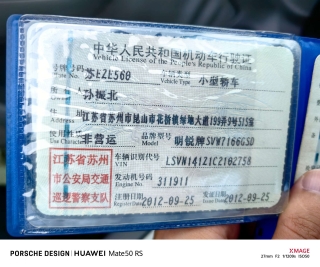 中华人民共和国机动车行驶证
Vehicle License of the People's Republic of China
号牌号码 苏EZE560 车辆类型 小型轿车
Plate No. Vehicle Type
孙振北
江苏省苏州市昆山市花桥镇绿地大道199弄9号515室
使用性质 非营运 品牌型号 明锐牌SVW7166GSD
Model
江苏省苏州
市公安局交通
巡逻警察支队
车辆识别代号 LSVW141Z1C2102758
VIN
发动机号码 311911
Engine No.
注册日期 2012-09-25 发证日期 2012-09-25
PORSCHE DESIGN | HUAWEI Mate50 RS
XMAGE
27mm F2 1/1309s ISO50